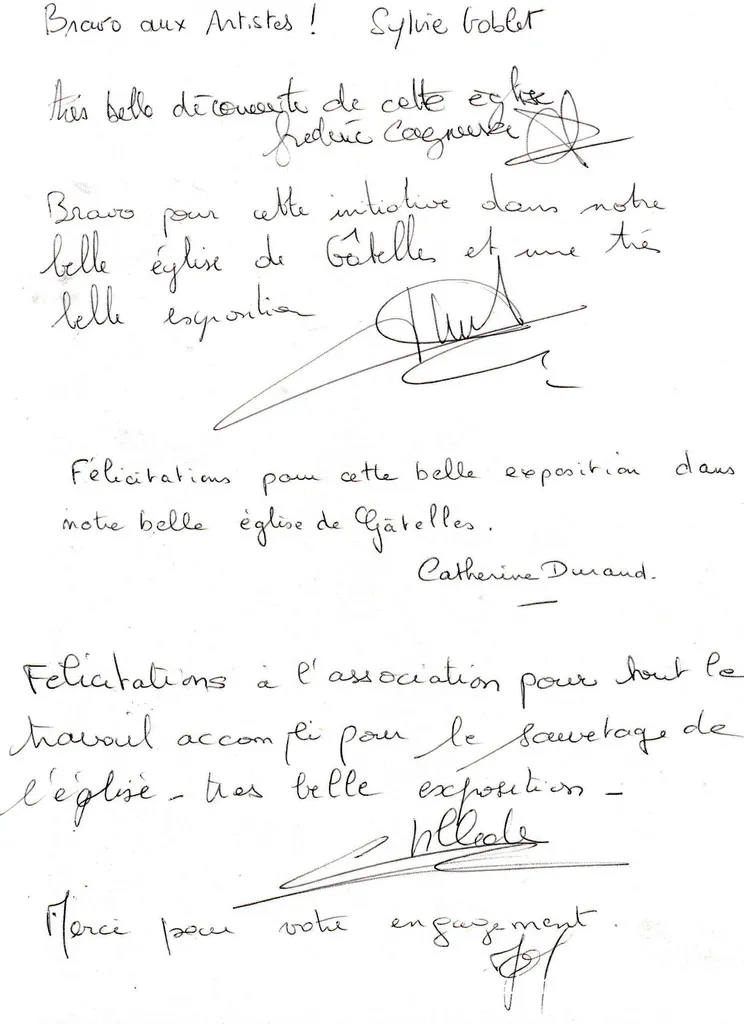 Bravo aux Artistes ! Sylvie Goblet
très belle découverte de cette église
frederic
Bravo pour cette initiative dans notre
belle église de Gâtelles et une très
belle exposition
Félicitations pour cette belle exposition dans
notre belle église de Gâtelles.
Catherine Durand.
Felicitations à l'association pour tout le
travail accompli pour le sauvetage de
l'église - tres belle exposition -
Merci pour votre engagement.